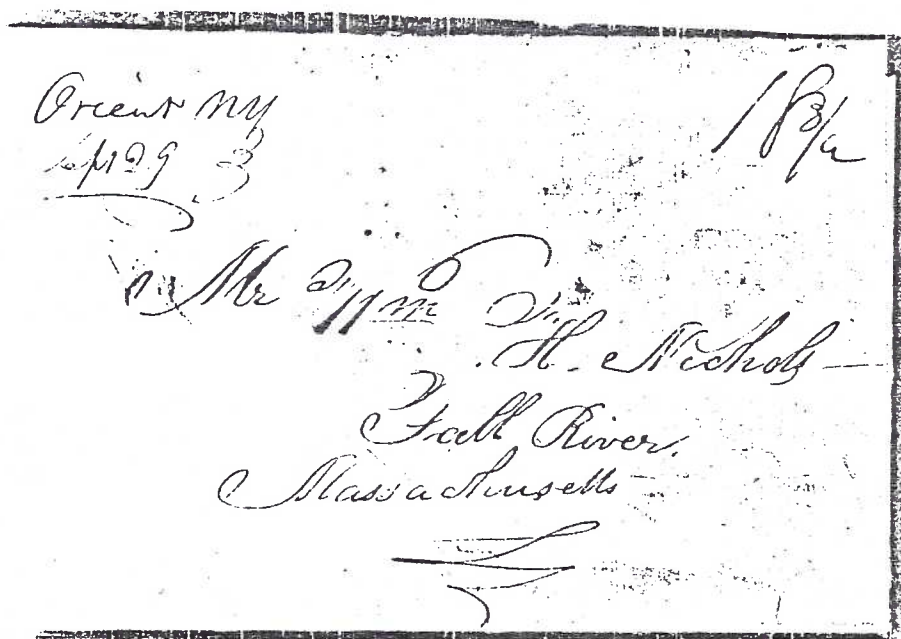 Orient NY
Sept 29
18 3/4
Mr Wm H. Nichols
Fall River,
Massachusetts